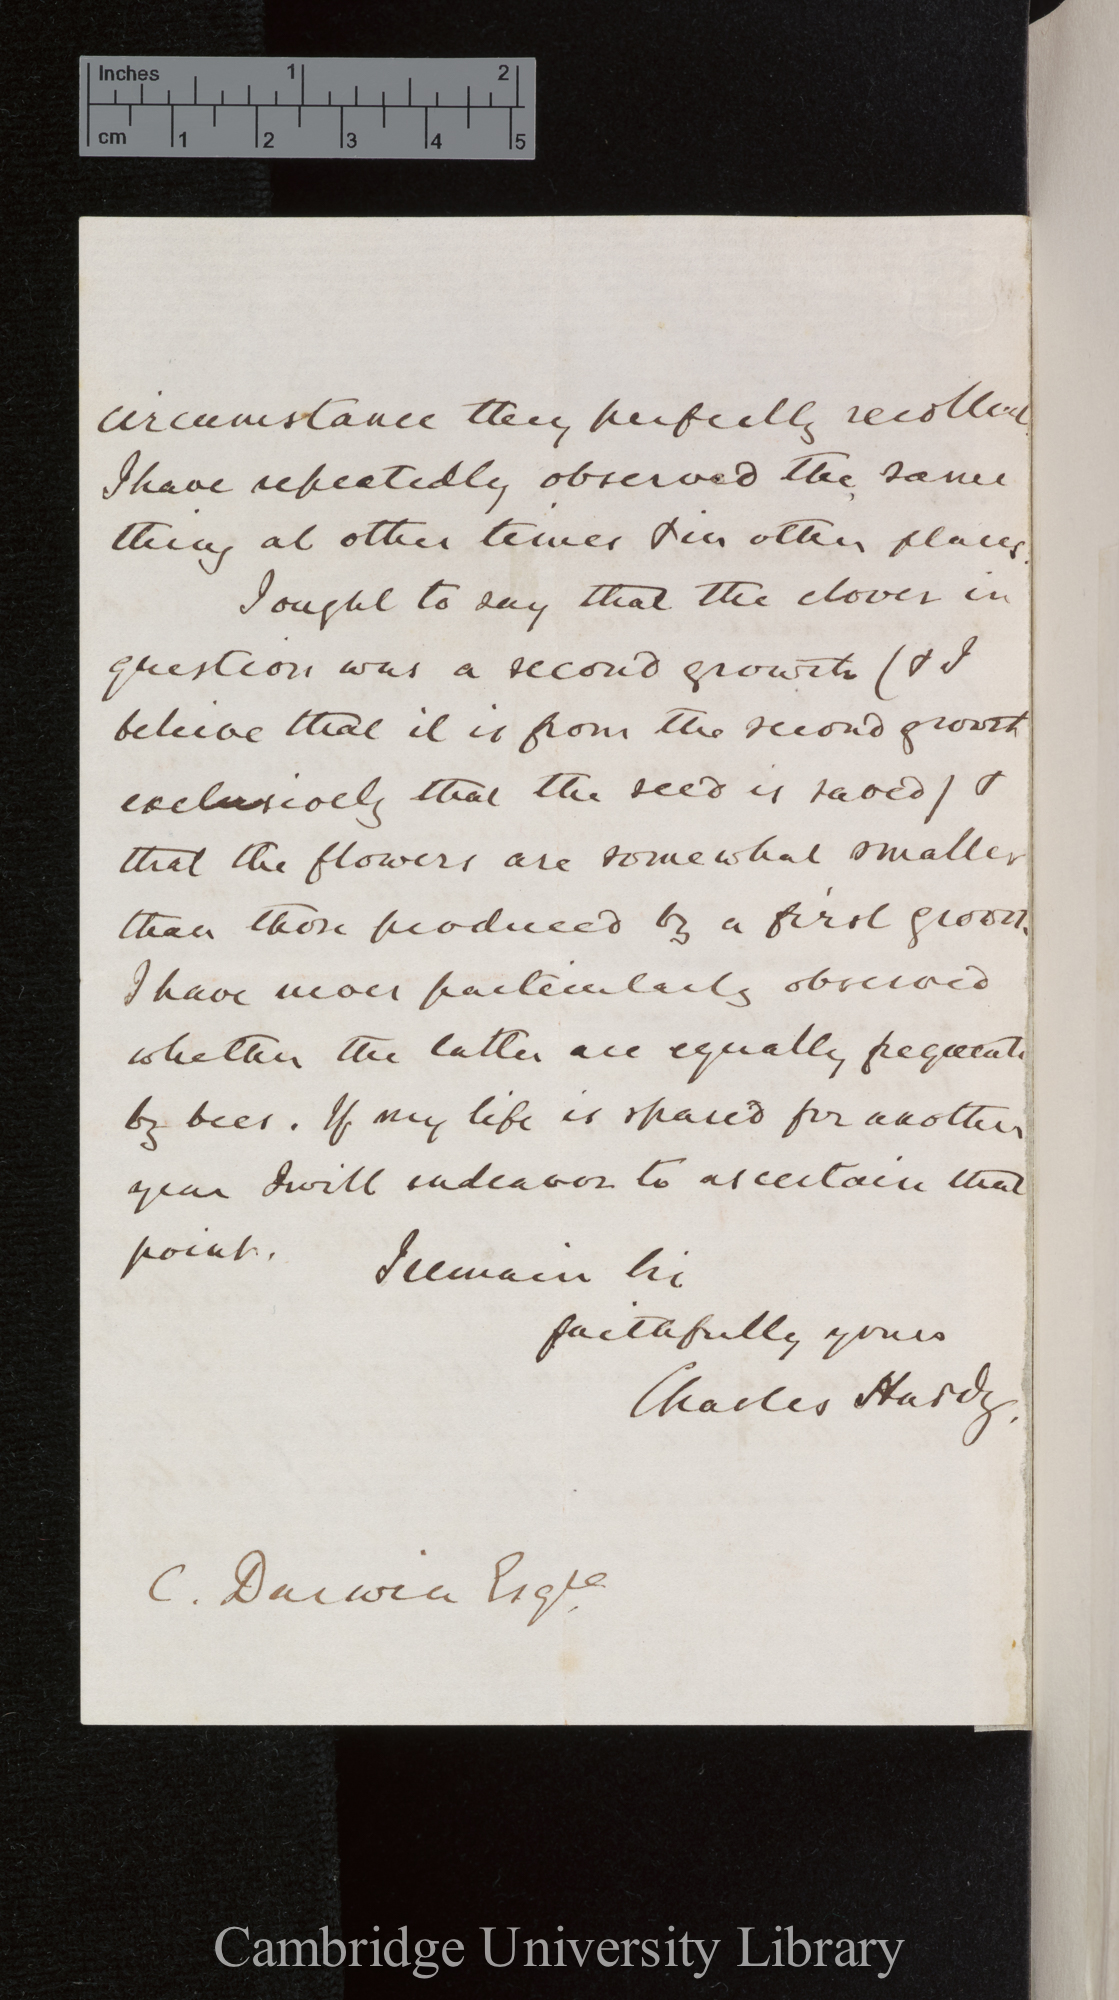 Inches 1 2
cm 1 2 3 4 5
circumstance they perfectly recollect.
I have repeatedly observed the same
thing at other times & in other places.
I ought to say that the clover in
question was a second growth (& I
believe that it is from the second growth
exclusively that the seed is saved) &
that the flowers are somewhat smaller
than those produced by a first growth.
I have never particularly observed
whether the latter are equally frequented
by bees. If my life is spared for another
year I will endeavor to ascertain that
point.
I remain Sir
faithfully yours
Charles Hardy.
C. Darwin Esqre
Cambridge University Library